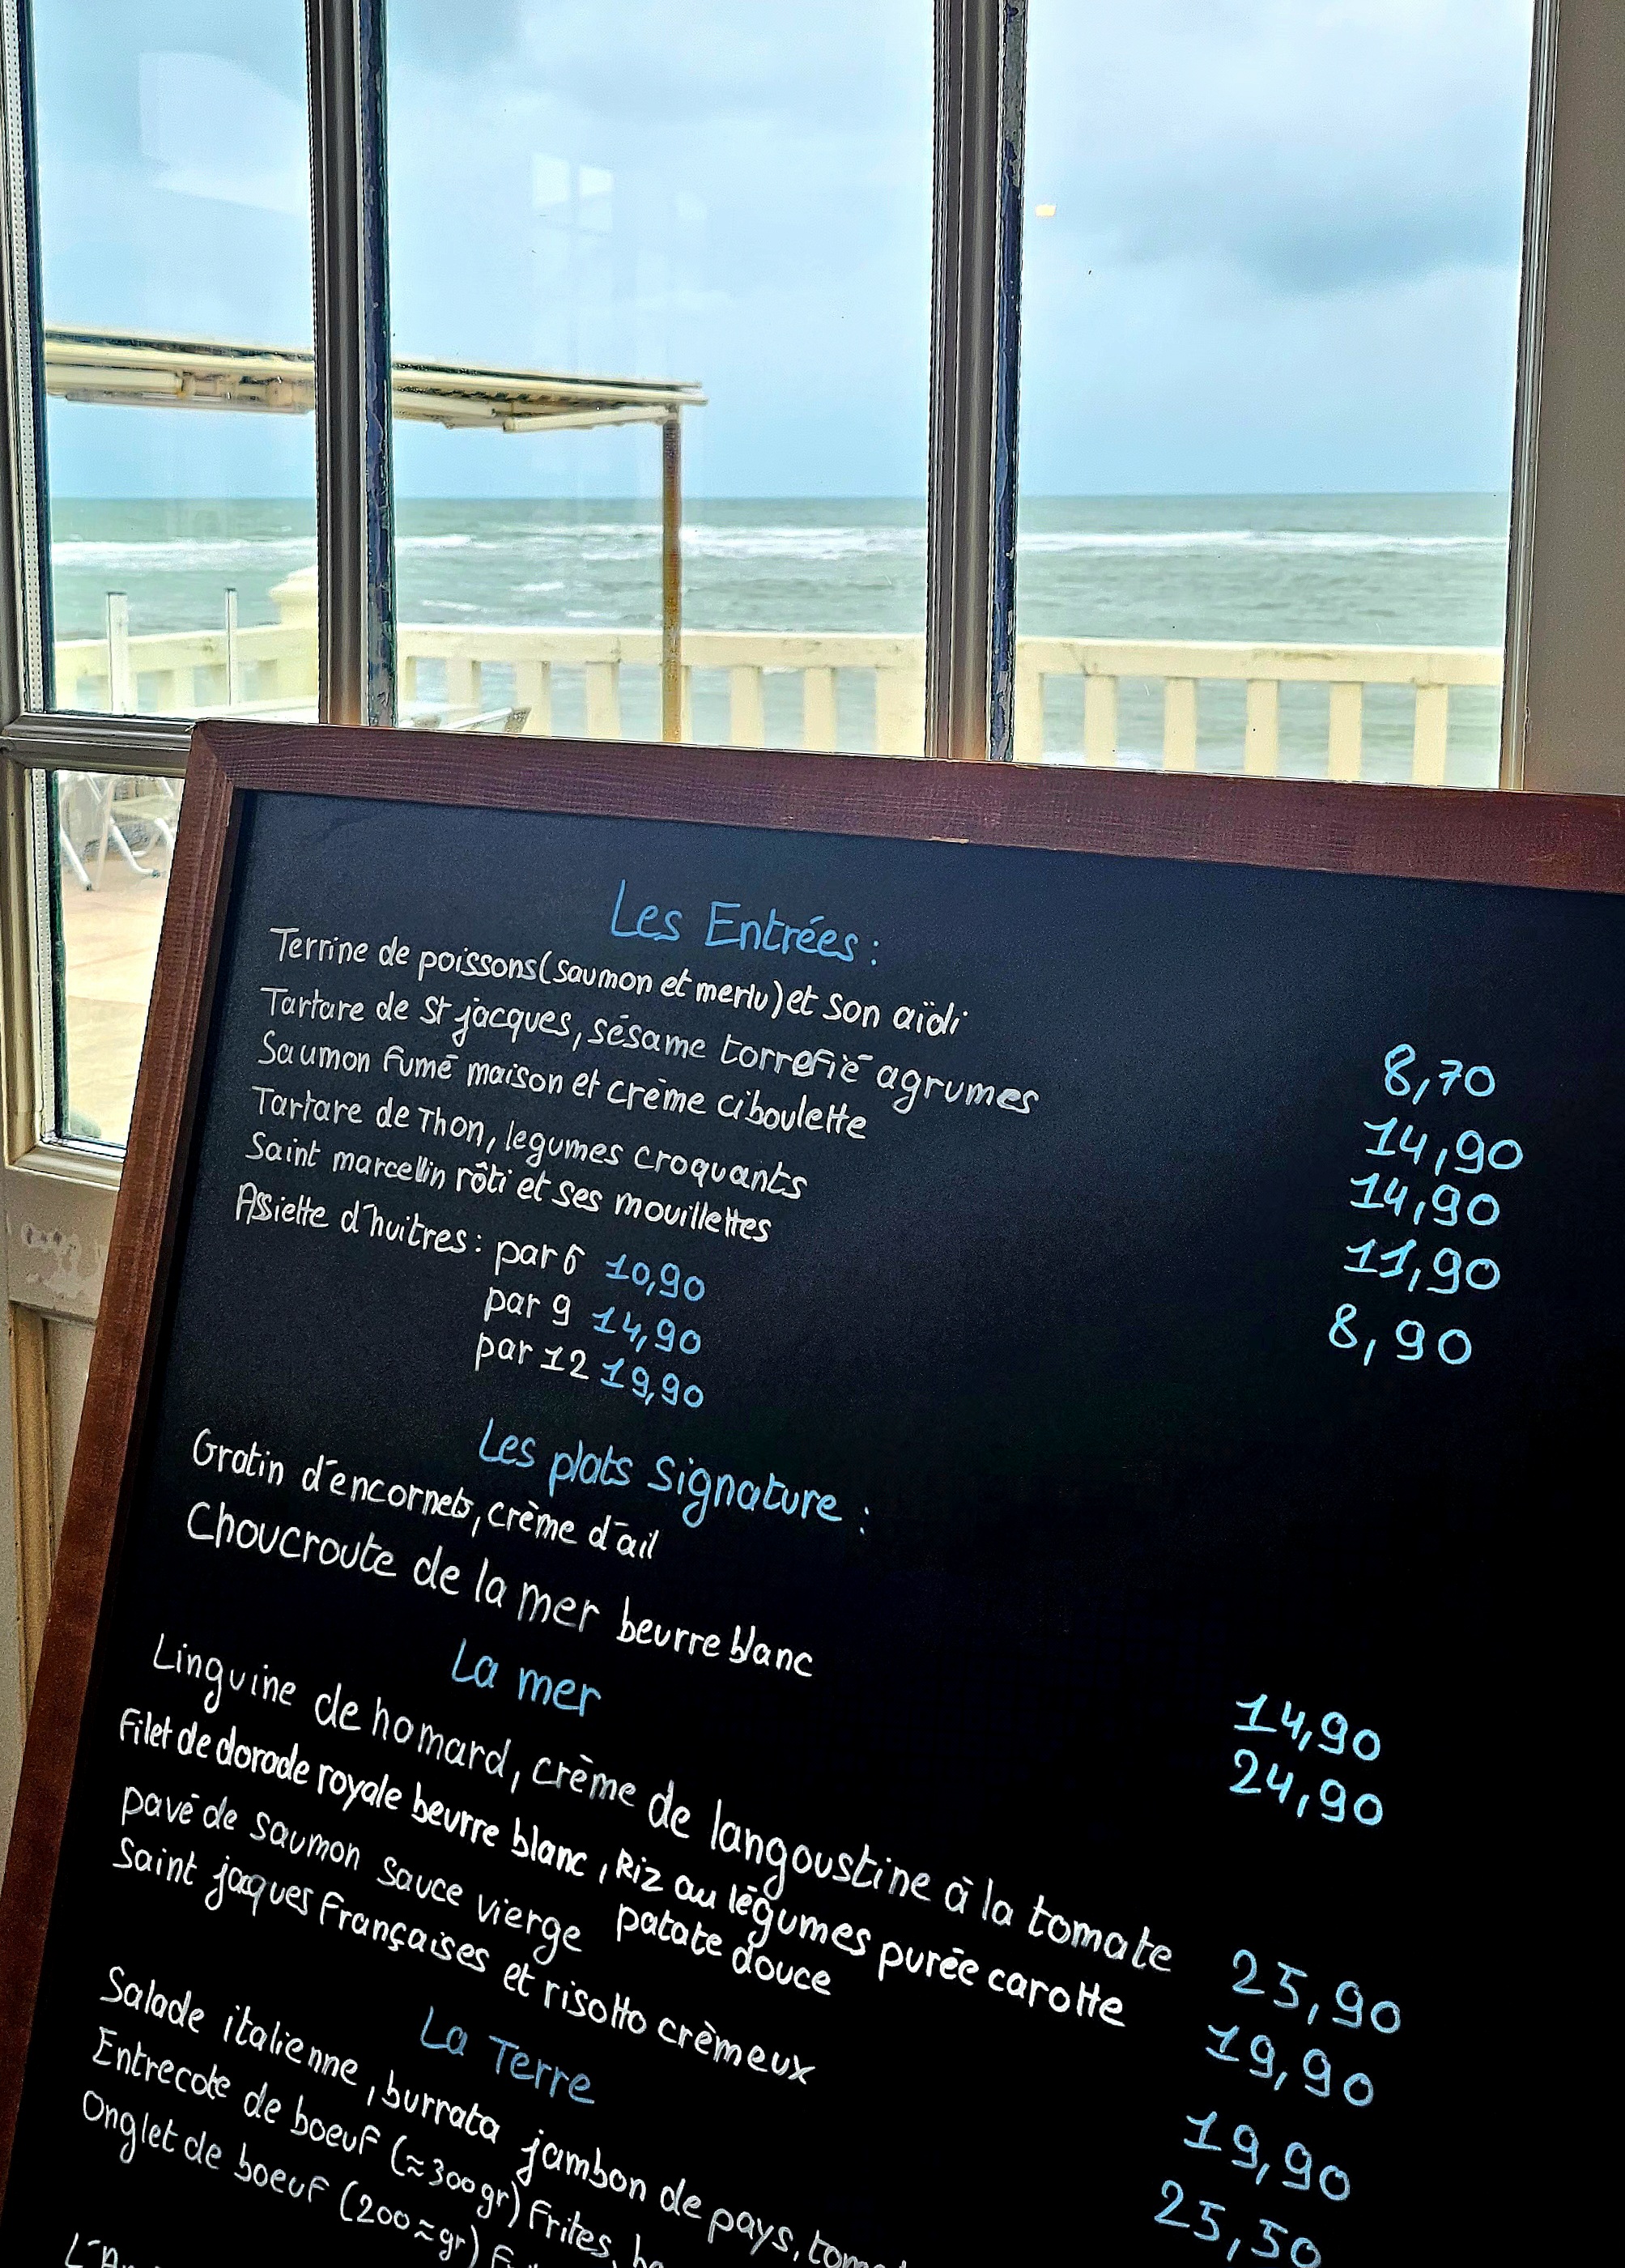 Les Entrées :
Terrine de poissons (saumon et merlu) et son aïoli 8,70
Tartare de St jacques, sésame torrefié agrumes 14,90
Saumon fumé maison et crème ciboulette 14,90
Tartare de Thon, legumes croquants 11,90
Saint marcellin rôti et ses mouillettes 8,90
Assiette d'huitres : par 6 10,90
par 9 14,90
par 12 19,90
Les plats Signature :
Gratin d'encornets, crème d'ail 14,90
Choucroute de la mer beurre blanc 24,90
La mer
Linguine de homard, crème de langoustine à la tomate 25,90
Filet de dorade royale beurre blanc, Riz au légumes purée carotte 19,90
patate douce
pavé de saumon sauce vierge 19,90
Saint jacques Françaises et risotto crèmeux 25,50
La Terre
Salade italienne, burrata jambon de pays,
Entrecote de boeuf (≈300gr) Frites,
Onglet de boeuf (200≈gr)